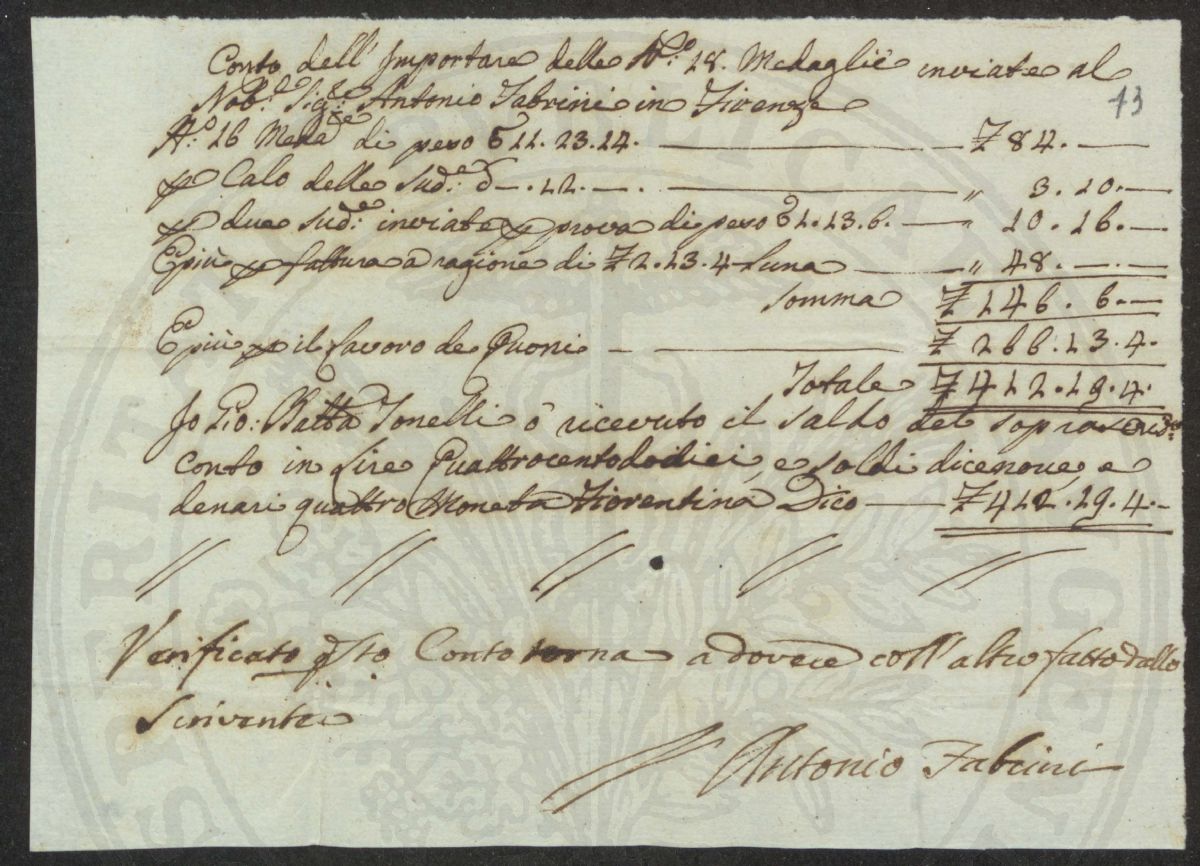 Conto dell'Importare delle N.º 18. Medaglie inviate al
Nob.e Sig.re Antonio Fabrini in Firenze
13
N.º 16 Meda.e di peso 11. 23. 14. — ₤ 84. —
p Calo delle Sud.e d — . 12. — . — „ 3. 10. —
p due sud.e inviate p prova di peso 1. 13. 6. — „ 10. 16. —
E più p fattura a ragione di ₤ 2. 13. 4 l'una — „ 48. — . —
Somma ₤ 146. 6. —
E più p il lavoro de Cuoni — ₤ 266. 13. 4.
Totale ₤ 412. 19. 4.
Jo Gio: Batta Tonelli ò ricevuto il saldo del soprascrid.o
conto in Lire Quattrocentododici, e soldi dicenove, e
denari quattro Moneta Fiorentina Dico — ₤ 412. 19. 4. —
Verificato qsto Conto torna a dovere coll'altro fatto dallo
Scrivente
Antonio Fabrini